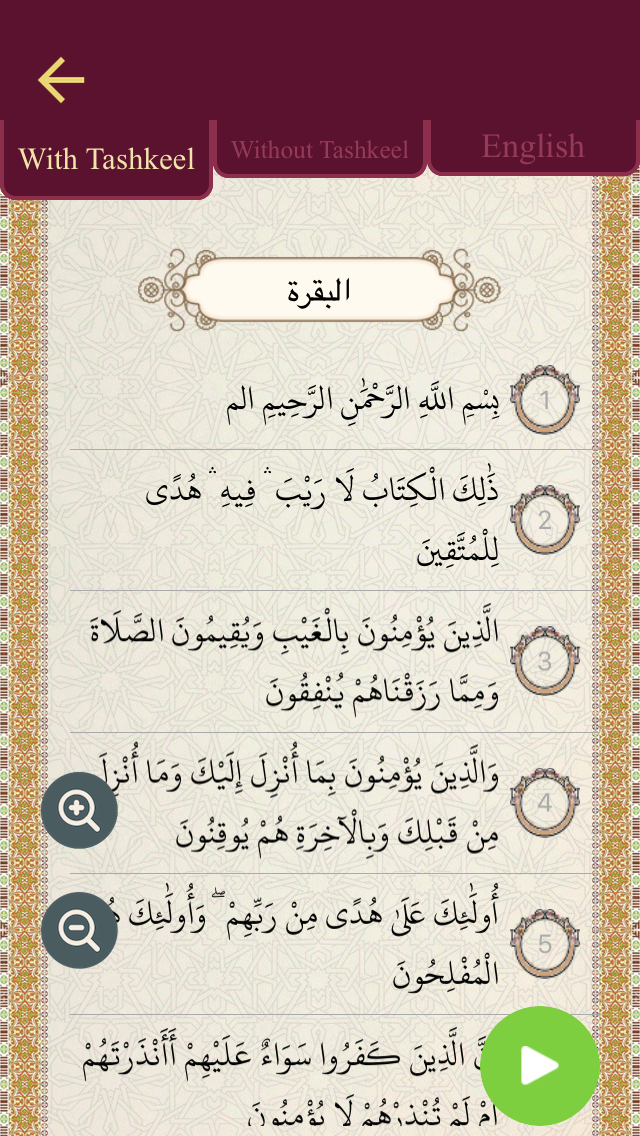 With Tashkeel
Without Tashkeel
English
البقرة
1
بِسْمِ اللَّهِ الرَّحْمَٰنِ الرَّحِيمِ الم
2
ذَٰلِكَ الْكِتَابُ لَا رَيْبَ ۛ فِيهِ ۛ هُدًى
لِلْمُتَّقِينَ
3
الَّذِينَ يُؤْمِنُونَ بِالْغَيْبِ وَيُقِيمُونَ الصَّلَاةَ
وَمِمَّا رَزَقْنَاهُمْ يُنْفِقُونَ
4
وَالَّذِينَ يُؤْمِنُونَ بِمَا أُنْزِلَ إِلَيْكَ وَمَا أُنْزِلَ
مِنْ قَبْلِكَ وَبِالْآخِرَةِ هُمْ يُوقِنُونَ
5
أُولَٰئِكَ عَلَىٰ هُدًى مِنْ رَبِّهِمْ ۖ وَأُولَٰئِكَ
الْمُفْلِحُونَ
الَّذِينَ كَفَرُوا سَوَاءٌ عَلَيْهِمْ أَأَنْذَرْتَهُمْ
أَمْ لَمْ تُنْذِرْهُمْ لَا يُؤْمِنُونَ